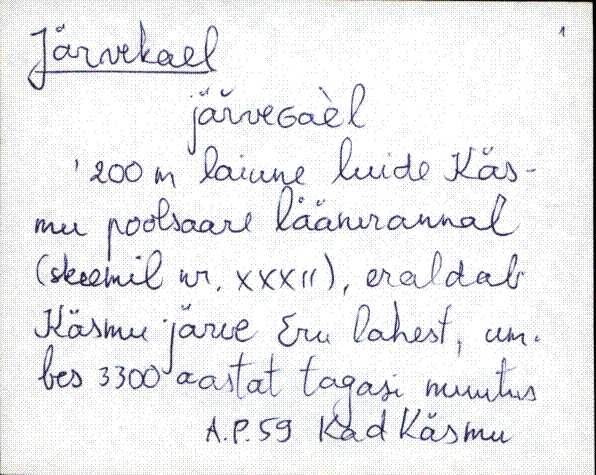 Järvekael 1
järveGaèl
200 m laiune luide Käs-
mu poolsaare läänerannal
(skeemil nr. XXXII), eraldab
Käsmu järve Eru lahest, um-
bes 3300 aastat tagasi muutus
A.P. 59 Kad Käsmu